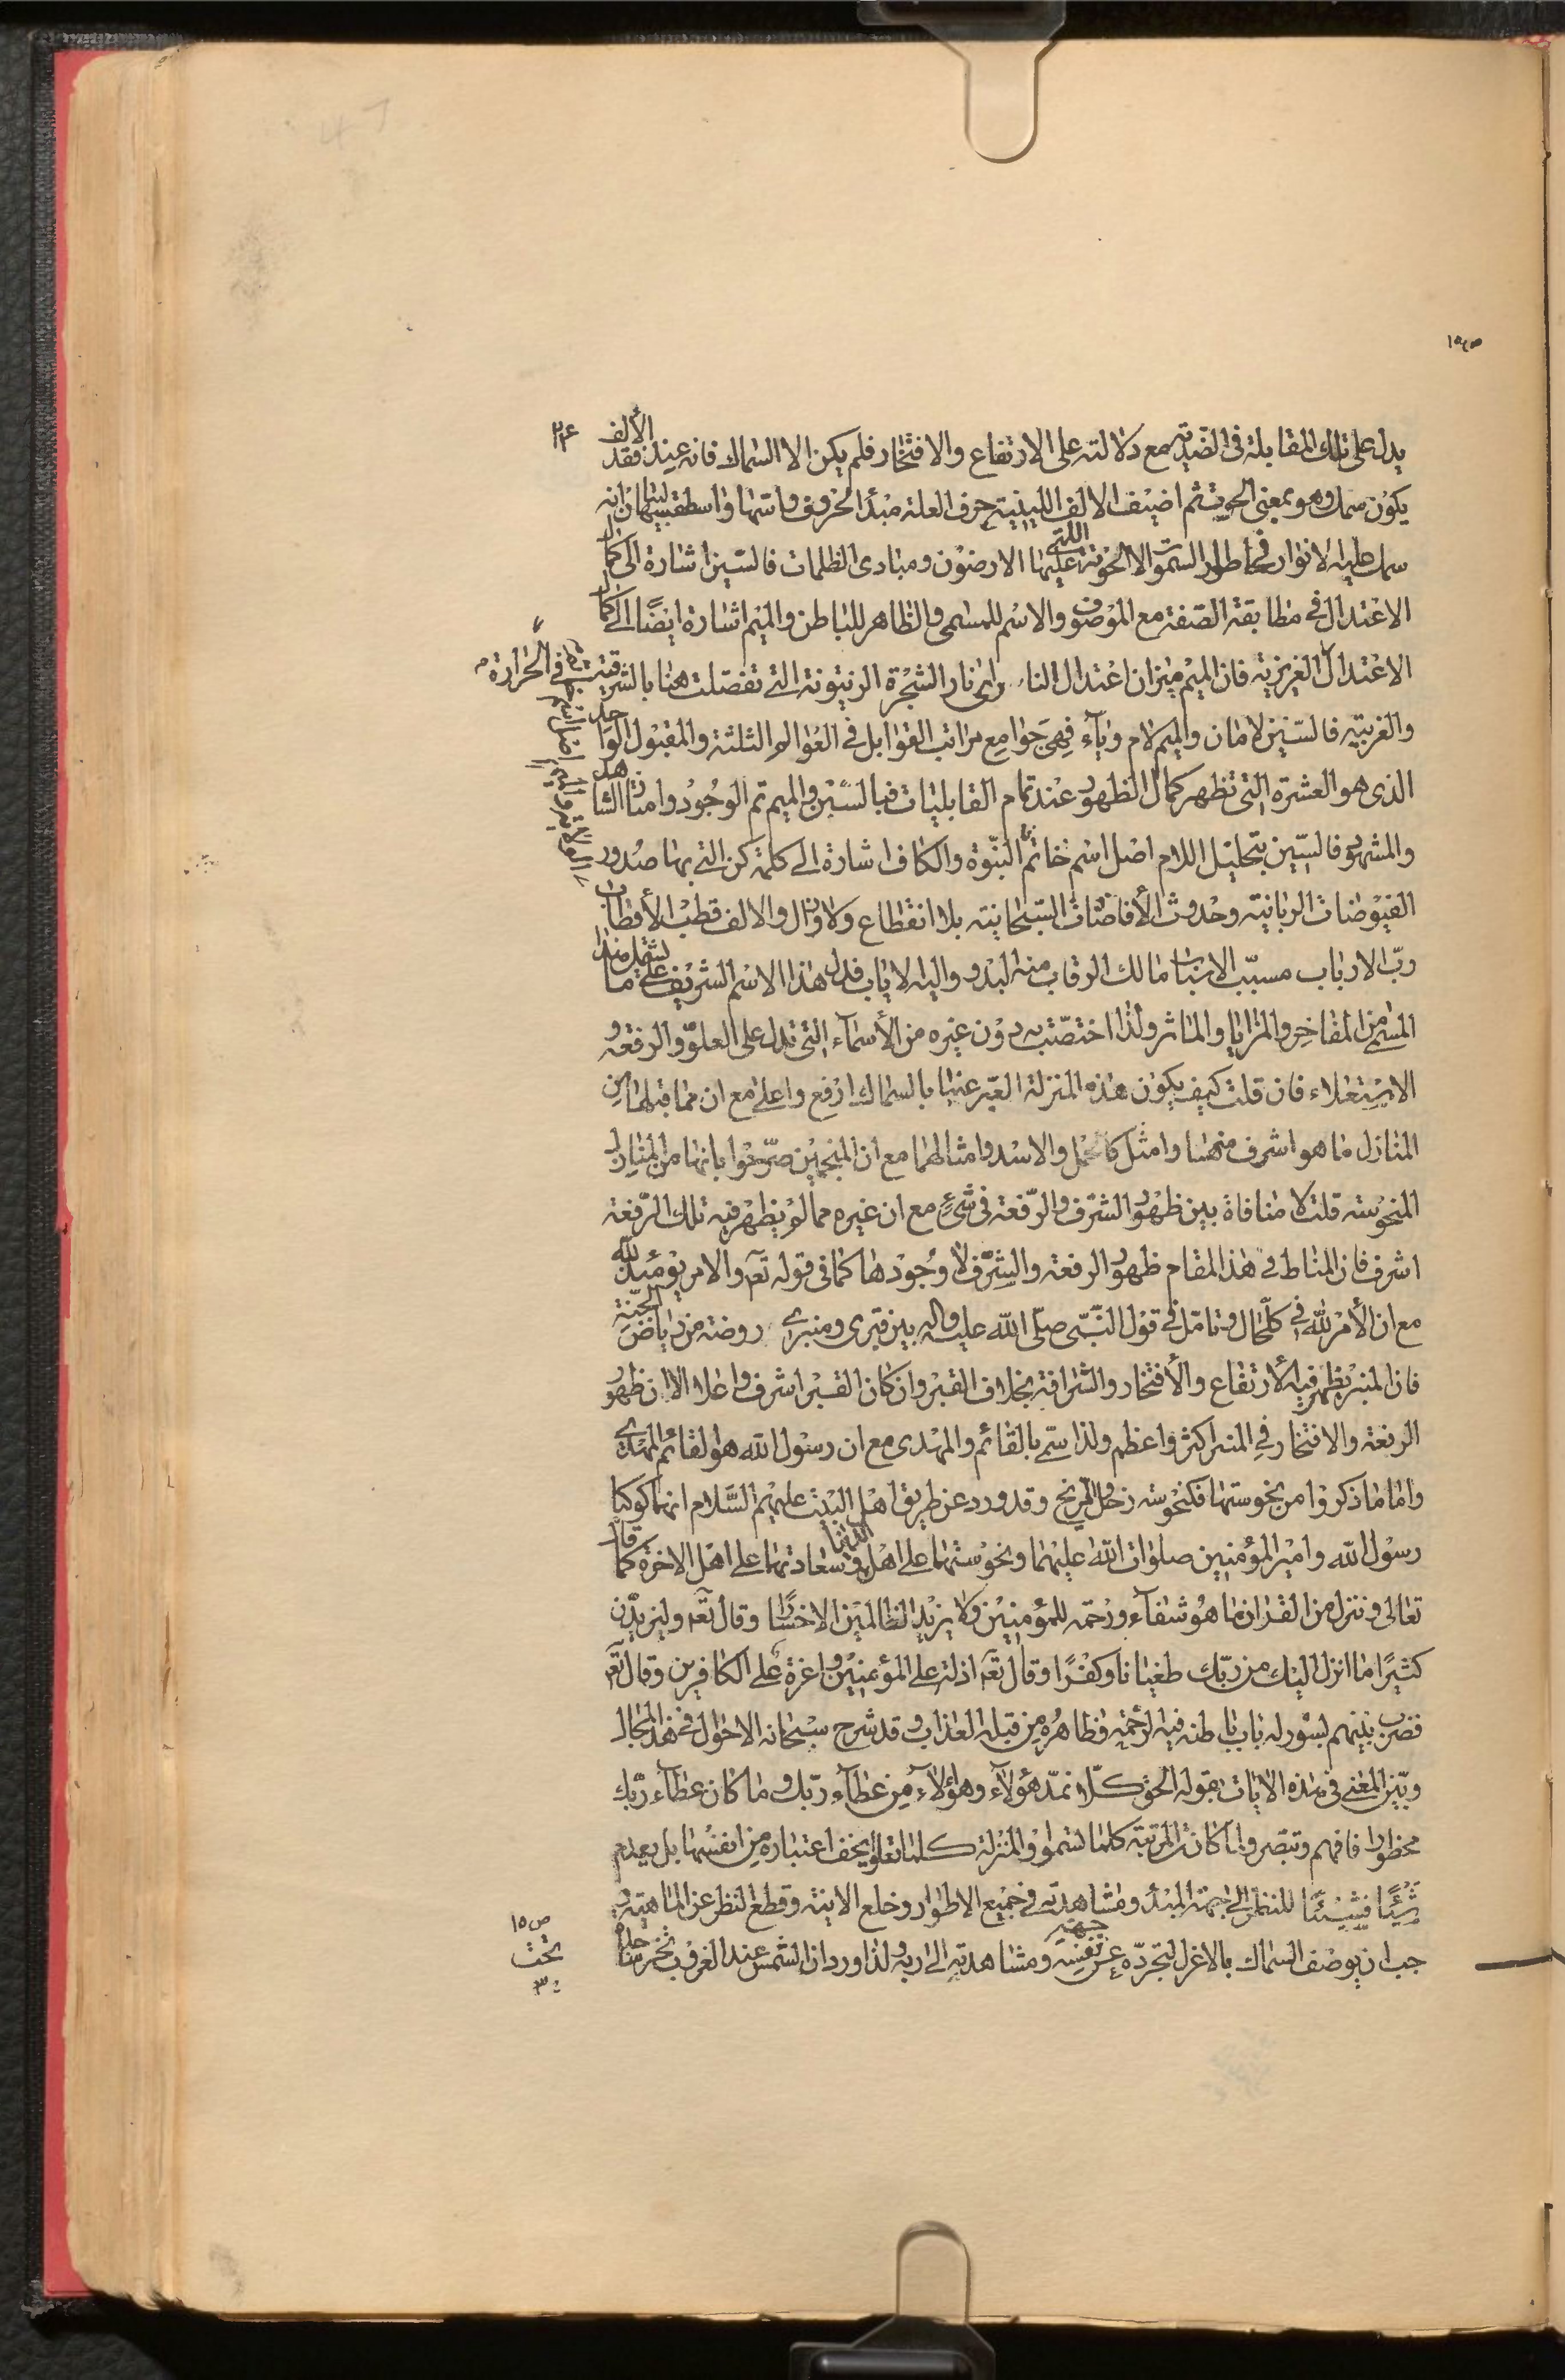 يدل على تلك المقابلة فى الضدية مع دلالته على الارتفاع والافتخار فلم يكن الا السماك فانه عند فقد الألف
يكون سمك وهو بمعنى الحوت ثم اضيف الالف اللينية حرف العلة مبدأ الحروف واسها واسطقسها لبيان انه
سمك عليه الانوار فى اطوار السموات لا الحوت اللتى عليها الارضون ومبادى الظلمات فالسين اشارة الى كمال
الاعتدال فى مطابقة الصفة مع الموصوف والاسم للمسمى والظاهر للباطن والميم اشارة ايضًا الى كمال
الاعتدال الغريزية فان الميم ميزان اعتدال النار اى نار الشجرة الزيتونة التى تفصلت هنا بالشرقية فى الحرارة
والغربية فالسين لامان والميم لام وياء فهى جوامع مراتب القوابل فى العوالم الثلثة والمقبول الواحد
الذى هو العشرة التى تظهر كمال الظهور عند تمام القابليات فبالسين والميم تم الوجود وامتاز الشاهد
والمشهود فالسين بتحليل اللام اصل اسم خاتم النبوة والكاف اشارة الى كلمة كن التى بها صدور
الفيوضات الربانية وحدوث الأفاضات السبحانية بلا انقطاع ولا زوال والالف قطب الأقطاب
ربّ الارباب مسبّب الاسباب مالك الرقاب منه البدو واليه الاياب فدل هذا الاسم الشريف على ما يشتمل هذا
المسمى من المفاخر والمزايا والمآثر ولذا اختصت به دون غيره من الأسماء التى تدل على العلوّ والرفعة و
الاستعلاء فان قلت كيف يكون هذه المنزلة المعبّر عنها بالسماك ارفع واعلى مع ان مما قبلها من
المنازل ما هو اشرف منها وامثل كالحمل والاسد وامثالهما مع ان المنجمين صرّحوا بانها من المنازل
المنحوسة قلت لا منافاة بين ظهور الشرف والرّفعة فى شىء مع ان غيره مما لم يظهر فيه تلك الرّفعة
اشرف فان المناط فى هذا المقام ظهور الرفعة والشرف لا وجودها كما فى قوله تع والامر يومئذ لله
مع ان الأمر لله فى كل حال وتامّل فى قول النّبى صلّى الله عليه واله بين قبرى ومنبرى روضة من رياض الجنّة
فان المنبر يظهر فيه الأرتفاع والأفتخار والشرافة بخلاف القبر وان كان القبر اشرف واعلا الا ان ظهور
الرفعة والافتخار فى المنبر اكثر واعظم ولذا سمّى بالقائم والمهدى مع ان رسول الله هو القائم المهدى
واما ما ذكروا من نحوستها فكنحوسة زحل والمريخ وقد ورد عن طريق اهل البيت عليهم السّلام انهما كوكبا
رسول الله وامير المؤمنين صلوات الله عليهما ونحوستهما على اهل الدنيا وسعادتهما على اهل الاخرة كما قال
تعالى وننزل من القران ما هو شفآء ورحمة للمؤمنين ولا يزيد الظالمين الا خسارًا وقال تع وليزيدّن
كثيرًا ما انزل اليك من ربّك طغيانا وكفرًا وقال تع اذلة على المؤمنين واعزة على الكافرين وقال تع
فضرب بينهم بسور له باب باطنه فيه الرحمة وظاهره من قبله العذاب وقد شرح سبحانه الاحوال فى هذا المجال
وبيّن المعنى فى هذه الايات بقوله الحق كلّا نمدّ هؤلآء وهؤلآء من عطآء ربّك وما كان عطآء ربّك
محظورا فافهم وتبصر ولما كانت المرتبة كلما تسموا والمنزلة كلما تعلوا يخف اعتباره من نفسها بل يعدم
شيئًا فشيئًا للنظر الى جهة المبدأ ومشاهدته فى جميع الاطوار وخلع الانية وقطع النظر عن الماهية و
جب ان يوصف السماك بالاعزل لتجرّده عن جهة نفسه ومشاهدته الى ربه ولذا ورد ان الشمس عند الغروب تخر ساجدة
ص ١٥
تحت